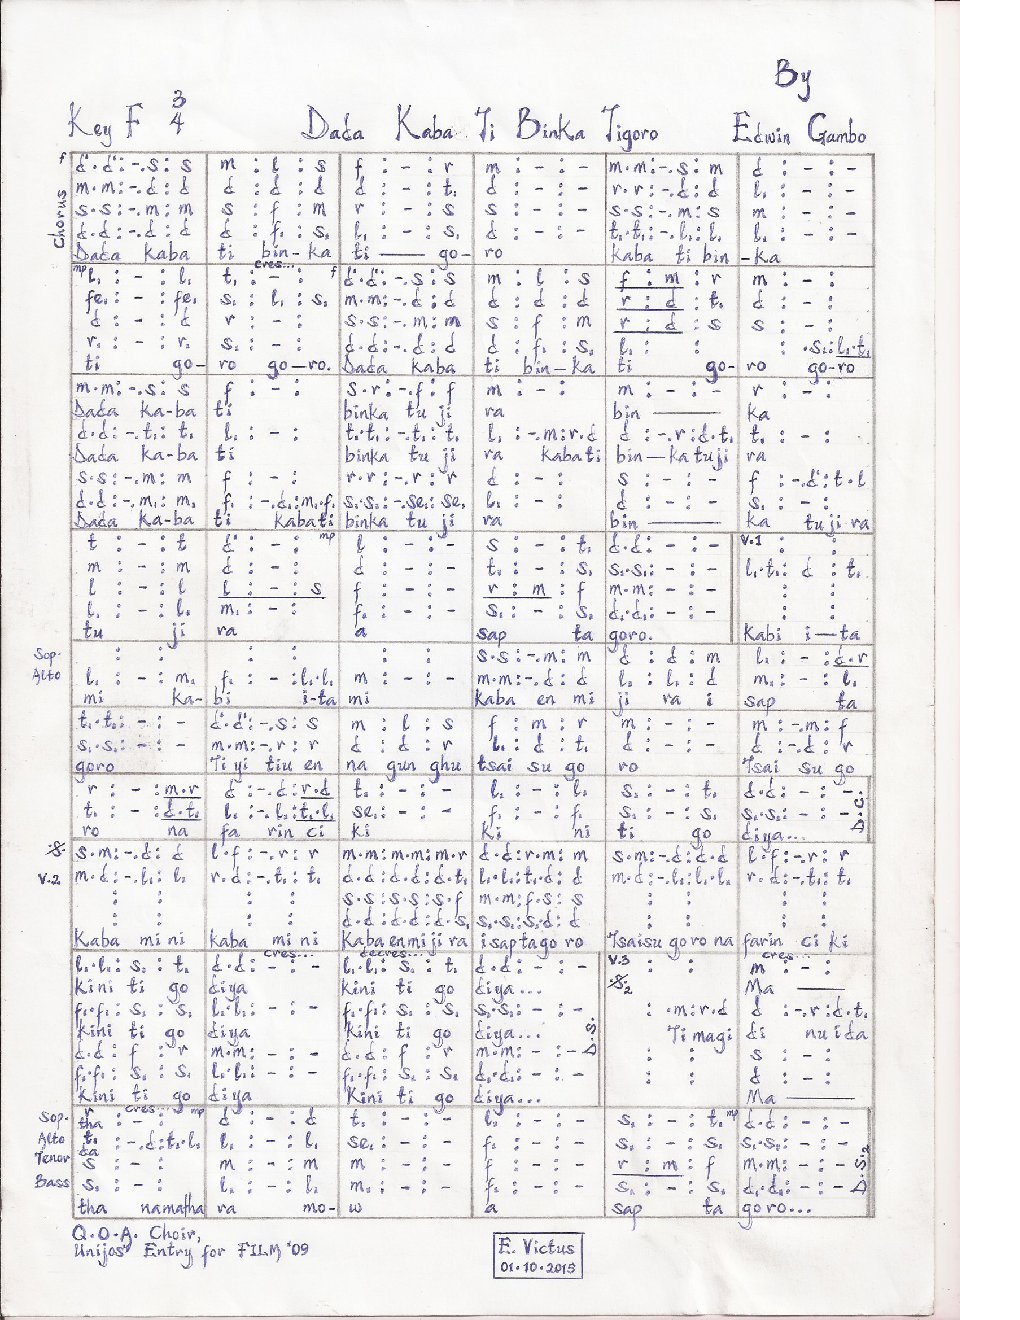 By
Key F 3/4 Dada Kaba Ti Binka Tigoro Edwin Gambo
Chorus
f d'.d':-.s:s | m:l:s | f:-:r | m:-:- | m.m:-.s:m | d:-:-
m.m:-.d:d | d:d:d | d:-:t₁ | d:-:- | r.r:-.d:d | l₁:-:-
s.s:-.m:m | s:f:m | r:-:s | s:-:- | s.s:-.m:s | m:-:-
d.d:-.d:d | d:f₁:s₁ | l₁:-:s₁ | d:-:- | t₁.t₁:-.l₁:l₁ | l₁:-:-
Dada kaba | ti bin-ka | ti — go- | ro | kaba ti bin | -ka
cres...
mp l₁:-:l₁ | t₁:-: f | d'.d':-.s:s | m:l:s | f:m:r | m:-:
fe₁:-:fe₁ | s₁:l₁:s₁ | m.m:-.d:d | d:d:d | r:d:t₁ | d:-:
d:-:d | r:-: | s.s:-.m:m | s:f:m | r:d:s | s:-:
r₁:-:r₁ | s₁:-: | d.d:-.d:d | d:f₁:s₁ | l₁: : | :.s₁:l₁.t₁
ti go- | ro go-ro. | Dada kaba | ti bin-ka | ti go- | ro go-ro
m.m:-.s:s | f:-: | s.r:-.f:f | m:-: | m:-:- | r:-:
Dada ka-ba | ti | binka tu ji | ra | bin — | ka
d.d:-.t₁:t₁ | l₁:-: | t₁.t₁:-.t₁:t₁ | l₁:-.m:r.d | d:-.r:d.t₁ | t₁:-:
Dada ka-ba | ti | binka tu ji | ra kabati | bin-katuji | ra
s.s:-.m:m | f:-: | r.r:-.r:r | d:-: | s:-:- | f:-.d':t.l
d.d:-.m₁:m₁ | f₁:-.d₁:m₁.f₁ | s₁.s₁:-.se₁:se₁ | l₁:-: | d:-:- | s₁:-:
Dada ka-ba | ti kabati | binka tu ji | ra | bin — | ka tu ji ra
t:-:t | d':-: mp | l:-:- | s:-:t₁ | d.d:-:- | V.1 : :
m:-:m | d:-: | d:-:- | t₁:-:s₁ | s₁.s₁:-:- | l₁.t₁:d:t₁
l:-:l | l:-:s | f:-:- | r:m:f | m.m:-:- | : :
l₁:-:l₁ | m₁:-: | f₁:-:- | s₁:-:s₁ | d₁.d₁:-:- | : :
tu ji | ra | a | sap ta | goro. | Kabi i-ta
Sop. : : | : : | : : | s.s:-.m:m | d:d:m | l₁:-:d.r
Alto l₁:-:m₁ | f₁:-:l₁.l₁ | m:-:- | m.m:-.d:d | l₁:l₁:d | m₁:-:l₁
mi ka- | bi i-ta | mi | kaba en mi | ji ra i | sap ta
t₁.t₁:-:- | d'.d':-.s:s | m:l:s | f:m:r | m:-:- | m:-.m:f
s₁.s₁:-:- | m.m:-.r:r | d:d:r | l₁:d:t₁ | d:-:- | d:-.d:r
goro | Ti yi tiu en | na gun ghu | tsai su go | ro | Tsai su go
r:-:m.r | d':-.d:r.d | t₁:-:- | l₁:-:l₁ | s₁:-:t₁ | d.d:-:-
t₁:-:d.t₁ | l₁:-.l₁:t₁.l₁ | se₁:-:- | f₁:-:f₁ | s₁:-:s₁ | s₁.s₁:-:- D.C.
ro na | fa rin ci | ki | Ki ni | ti go | diya...
s.m:-.d:d | l.f:-.r:r | m.m:m.m:m.r | d.d:r.m:m | s.m:-.d:d.d | l.f:-.r:r
V.2 m.d:-.l₁:l₁ | r.d:-.t₁:t₁ | d.d:d.d:d.t₁ | l₁.l₁:t₁.d:d | m.d:-.l₁:l₁.l₁ | r.d:-.t₁:t₁
: : | : : | s.s:s.s:s.f | m.m:f.s:s | : : | : :
: : | : : | d.d:d.d:d.s₁ | s₁.s₁:s₁.d:d | : : | : :
Kaba mi ni | kaba mi ni | Kaba en mi ji ra | i sap ta go ro | Tsaisu go ro na | farin ci ki
cres... decres... cres...
l₁.l₁:s₁:t₁ | d.d:-:- | l₁.l₁:s₁:t₁ | d.d:-:- | V.3 : : | m:-:
Kini ti go | diya | Kini ti go | diya... | Ma —
f₁.f₁:s₁:s₁ | l₁.l₁:-:- | f₁.f₁:s₁:s₁ | s₁.s₁:-:- | :.m:r.d | d:-.r:d.t₁
Kini ti go | diya | Kini ti go | diya... | Ti magi | di nu i da
d.d:f:r | m.m:-:- | d.d:f:r | m.m:-:- D.S. | : : | s:-:
f₁.f₁:s₁:s₁ | l₁.l₁:-:- | f₁.f₁:s₁:s₁ | d₁.d₁:-:- | : : | d:-:
Kini ti go | diya | Kini ti go | diya... | Ma —
Sop. r:-: cres... mp | d:-:d | t₁:-:- | l₁:-:- | s₁:-:t₁ mp | d.d:-:-
tha
Alto t₁:-.d:t₁.l₁ | l₁:-:l₁ | se₁:-:- | f₁:-:- | s₁:-:s₁ | s₁.s₁:-:-
da
Tenor s:-: | m:-:m | m:-:- | f:-:- | r:m:f | m.m:-:-
Bass s₁:-: | l₁:-:l₁ | m₁:-:- | f₁:-:- | s₁:-:s₁ | d₁.d₁:-:- D.S.2
tha namatha | ra mo- | w | a | sap ta | goro...
Q.O.A. Choir,
Unijos' Entry for FILM '09
E. Victus
01.10.2015